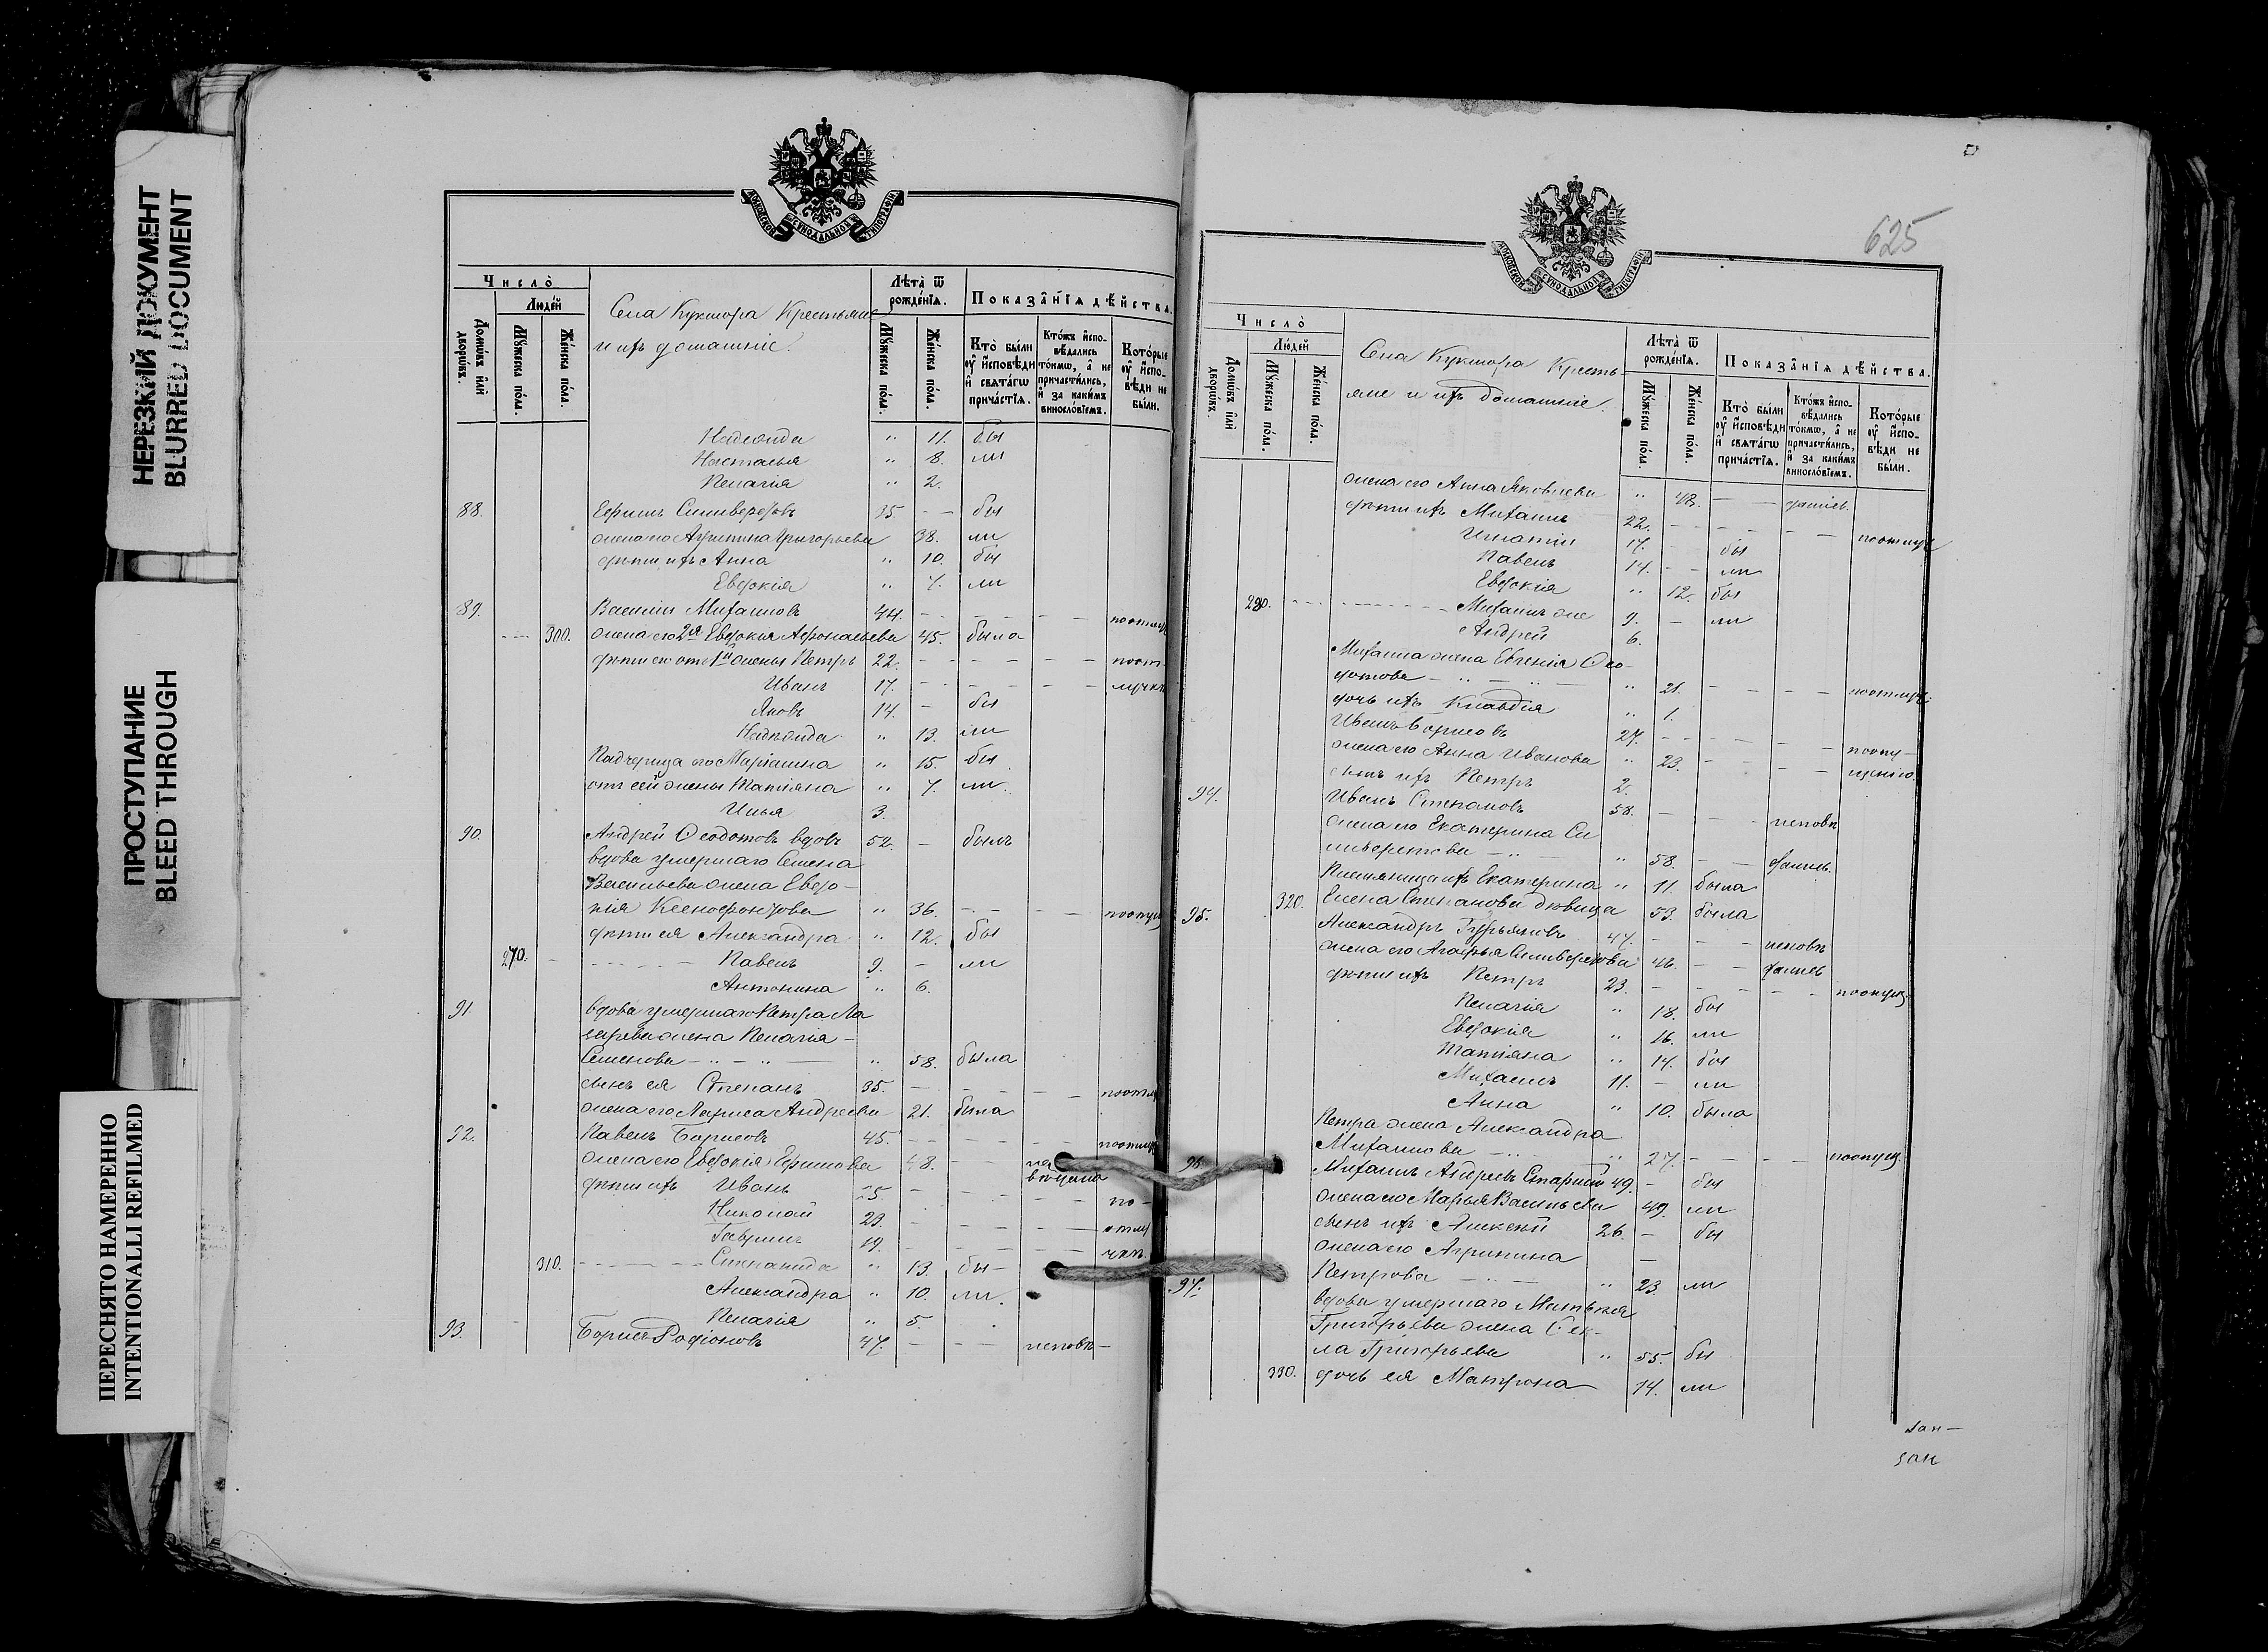 НЕРЕЗКИЙ ДОКУМЕНТ
BLURRED DOCUMENT
ПРОСТУПАНИЕ
BLEED THROUGH
ПЕРЕСНЯТО НАМЕРЕННО
INTENTIONALLI REFILMED
МОСКОВСКОЙ СѴНОДАЛЬНОЙ ТИПОГРАФІИ
Число̀
Людей
Домѡвъ или дворѡвъ.
Мꙋжеска пола.
Женска пола.
Села Кукшора Крестьяне
и ихъ домашніе.
Лѣта̀ ѿ рожденїѧ.
Мꙋжеска пола.
Женска пола.
Показанїѧ дѣйства.
Кто были оу исповѣди и свѧтагѡ причастїѧ.
Ктожъ исповѣдались токмѡ, а не причастились, и за какимъ винословїемъ.
Которые оу исповѣди не были.
Надежда " 11. бы
Настасья " 8. ли
Пелагія " 2.
88. Ефимъ Силиверстовъ 35 - - бы
жена его Агрипина Григорьева 38. ли
дѣти ихъ Анна " 10. бы
Евдокія " 7. ли
89. Василій Михаиловъ 44. - - - - поотлуч
300. жена его 2я Евдокія Афонасьева 45. была
дѣти его отъ 1й жены Петръ 22. - - - - поот-
Иванъ 17. - - - - лучкѣ
Яковъ 14. - бы
Надежда " 13. ли
Падчерица его Маріанна " 15. бы
отъ сей жены Татіяна " 7. ли
Илья 3.
90. Андрей Ѳеодотовъ вдовъ 52. - былъ
вдова умершаго Семена
Васильева жена Евдо-
кія Ксенофонтова " 36. - - - поопущ
дѣти ея Александра " 12. бы
270. - Павелъ 9. - ли
Антонина " 6.
91. вдова умершаго Петра Ла
зарева жена Пелагія -
Семенова - " - " - " 58. была
сынъ ея Степанъ 35. - - - - поотлу
жена его Лариса Андреева 21. была
92. Павелъ Борисовъ 45. - - - - поотлуч
жена его Евдокія Ефимова 48. - -
дѣти ихъ Иванъ 25. - - - - по-
Николай 23. - - - - отлу
Гавриилъ 19. - - - - чкѣ.
310. - Степанида " 13. бы-
Александра " 10. ли.
Пелагія " 5.
93. Борисъ Родіоновъ 47. - - - неповѣ-
625
МОСКОВСКОЙ СѴНОДАЛЬНОЙ ТИПОГРАФІИ
Число̀
Людей
Домѡвъ или дворѡвъ.
Мꙋжеска пола.
Женска пола.
Села Кукшора Кресть-
яне и ихъ домашніе.
Лѣта̀ ѿ рожденїѧ.
Мꙋжеска пола.
Женска пола.
Показанїѧ дѣйства.
Кто были оу исповѣди и свѧтагѡ причастїѧ.
Ктожъ исповѣдались токмѡ, а не причастились, и за какимъ винословїемъ.
Которые оу исповѣди не были.
жена его Анна Яковлева " 48. - -
дѣти ихъ Михаилъ 22. - - - - поотлуч
Игнатій 17. - бы
Павелъ 14. - - ли
Евдокія " 12. бы
280. - Михаилъ же 9. - ли
Андрей 6.
Михаила жена Евгенія Ѳео-
дотова - " - " - " 21. - - - - поотлуч.
дочь ихъ Клавдія " 1.
Иванъ Борисовъ 27. - - - - поопу-
жена его Анна Иванова " 23. - - - щенію.
сынъ ихъ Петръ 2.
94. Иванъ Степановъ 58. - - - неповѣ
жена его Екатерина Си
ливерстова - " - " 58. - -
Племяница ихъ Екатерина " 11. была
95. 320. Елена Степанова дѣвица 53. была
Александръ Гурьяновъ 47. - - - неповѣ
жена его Агафья Силиверстова 46. - -
дѣти ихъ Петръ 23. - - - - поопущ.
Пелагія " 18. бы
Евдокія " 16. ли
Татіяна " 14. бы
Михаилъ 11. - ли
Анна " 10. была
Петра жена Александра
Михаилова - " - " 27. - - - - поопущ.
96. Михаилъ Андреевъ Старшій 49. - бы
жена его Марья Васильева 49. ли
сынъ ихъ Алексѣй 26. - бы
жена его Агрипина -
Петрова - " - " 23. ли
97. вдова умершаго Матвея
Григорьева жена Ѳек-
ла Григорьева " 55. бы
330. дочь ея Матрона 14. ли